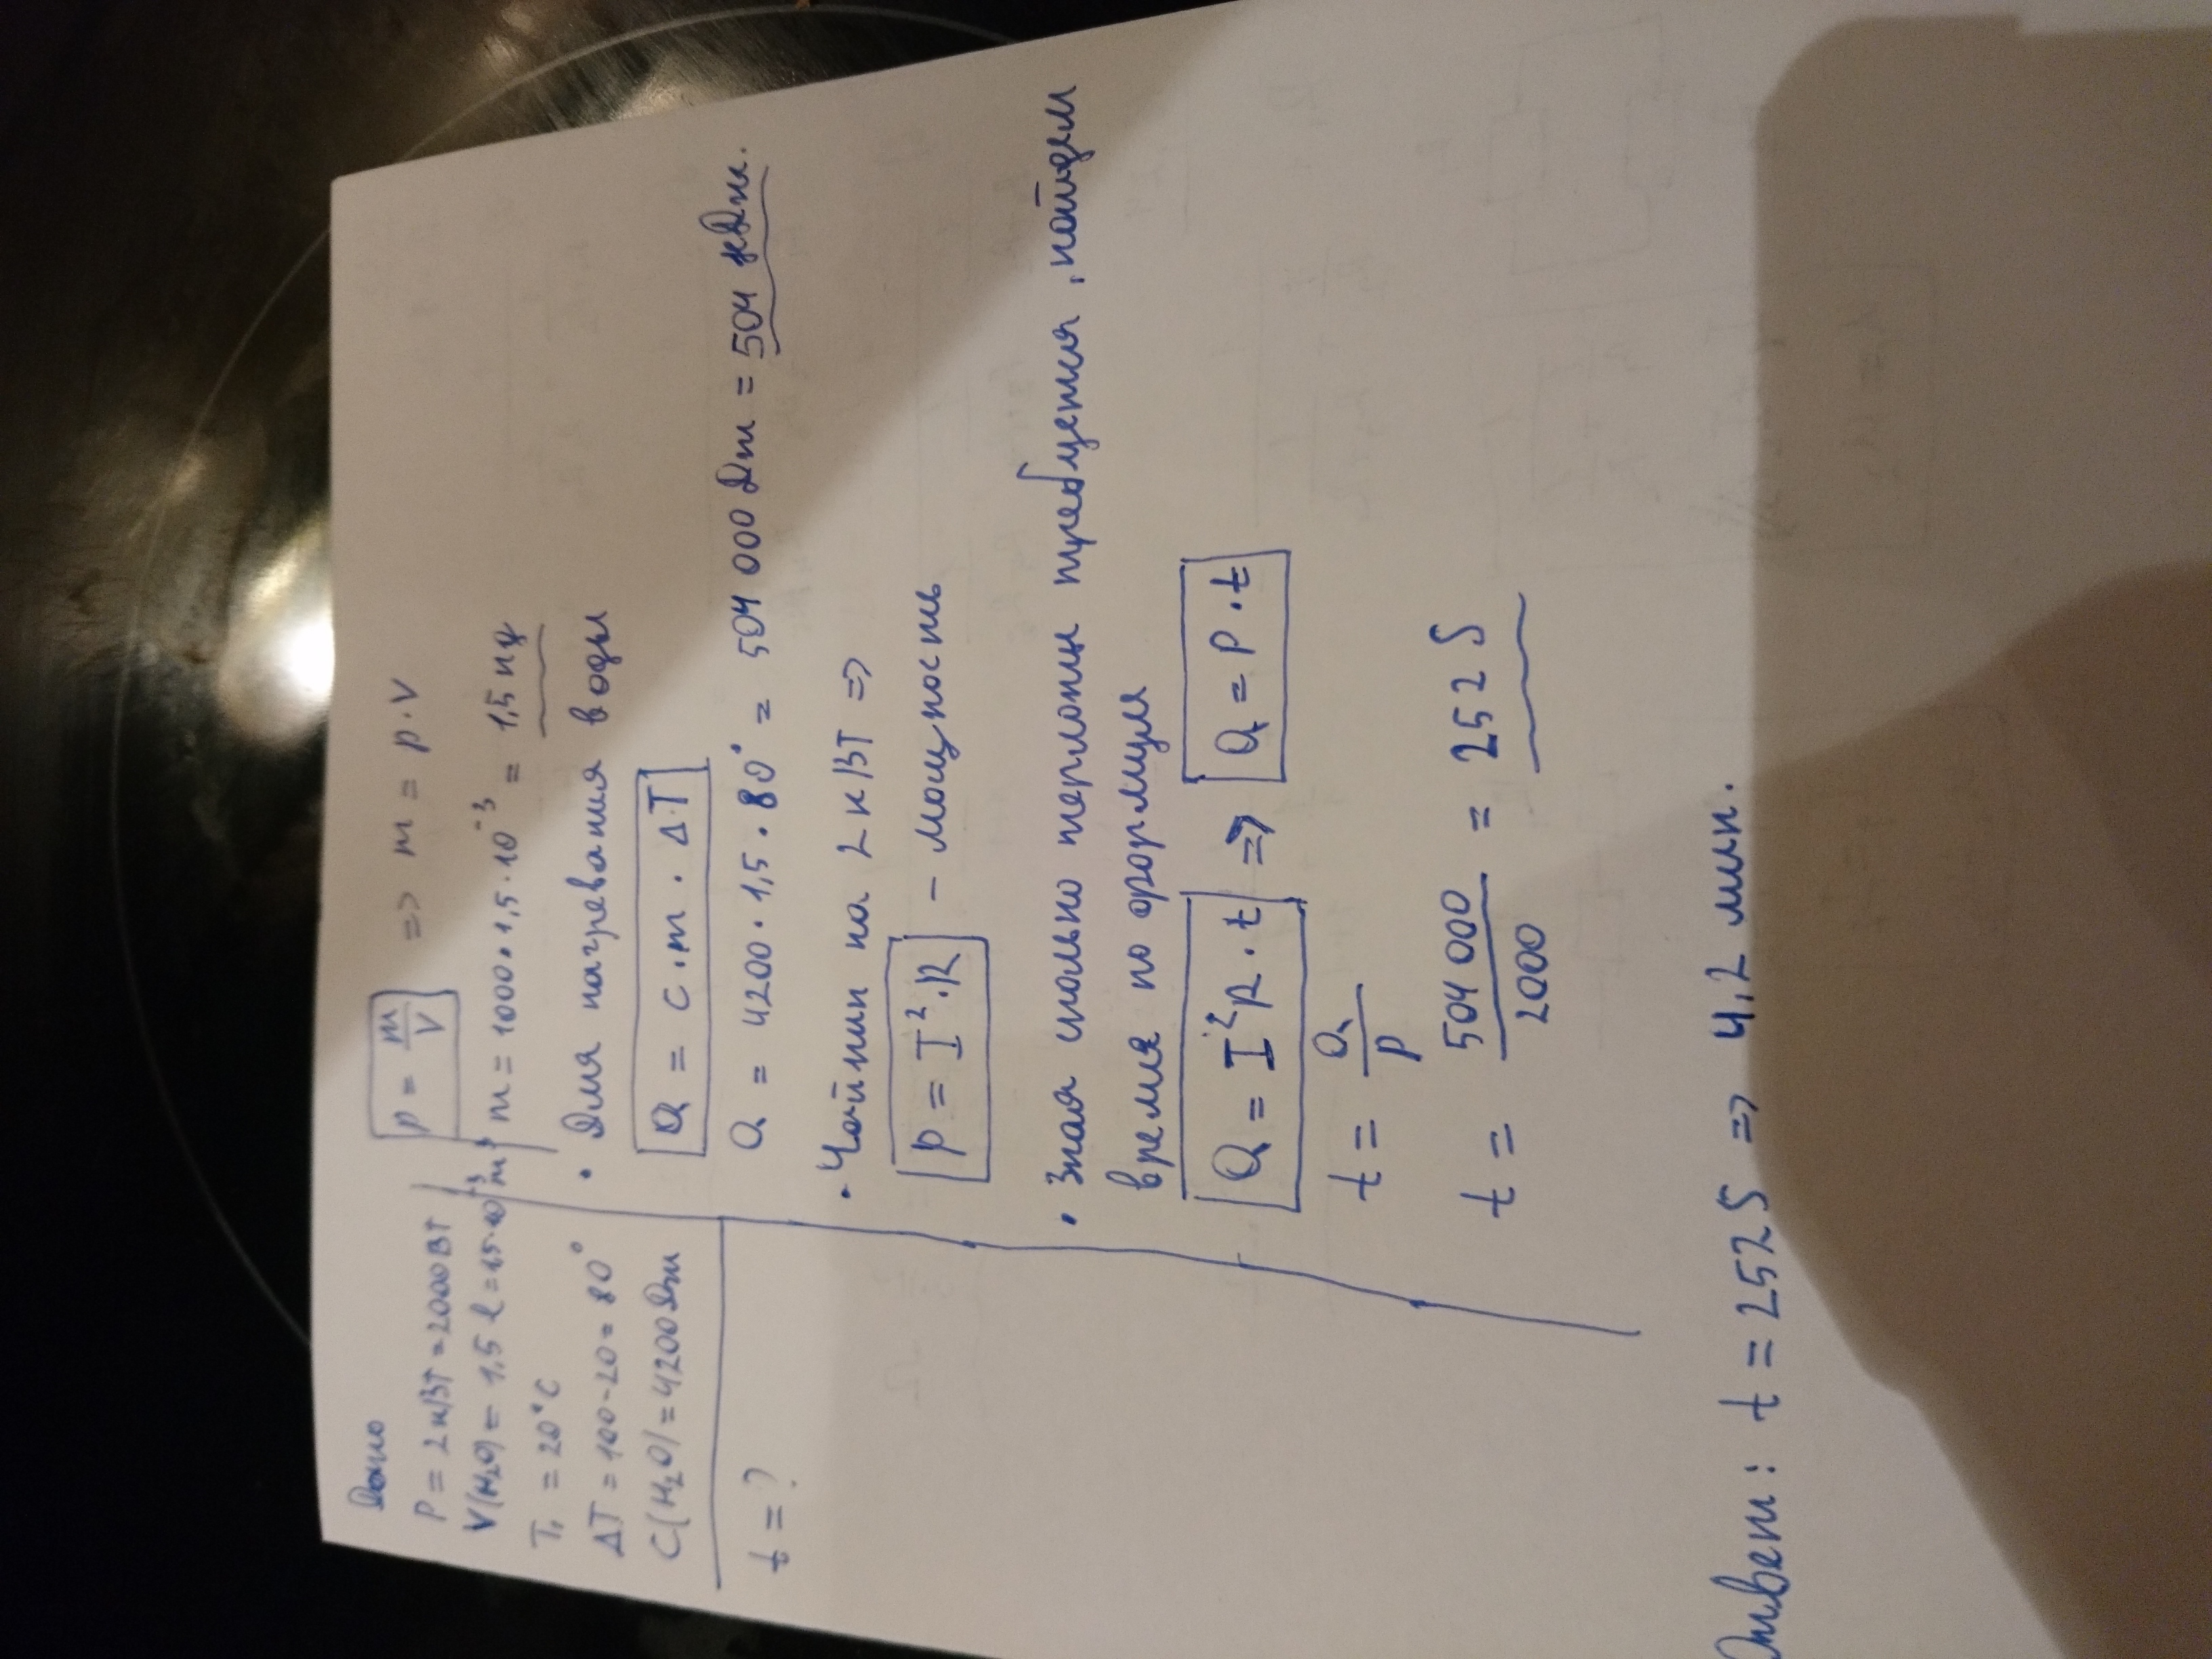 Дано
P = 2 кВТ = 2000ВТ
V(H₂O) = 1,5 l = 1,5·10⁻³ m³
T₁ = 20°C
ΔT = 100-20 = 80°
C(H₂O) = 4200 Дж
t = ?
p = m/V => m = p·V
m = 1000·1,5·10⁻³ = 1,5 кг
• Для нагревания воды
Q = c·m·ΔT
Q = 4200·1,5·80° = 504 000 Дж = 504 кДж.
• Чайник на 2 кВТ =>
P = I²·R - мощность
• Зная сколько теплоты требуется, найдем
время по формуле
Q = I²R·t => Q = P·t
t = Q/P
t = 504 000/2000 = 252 S
Ответ: t = 252 S => 4,2 мин.